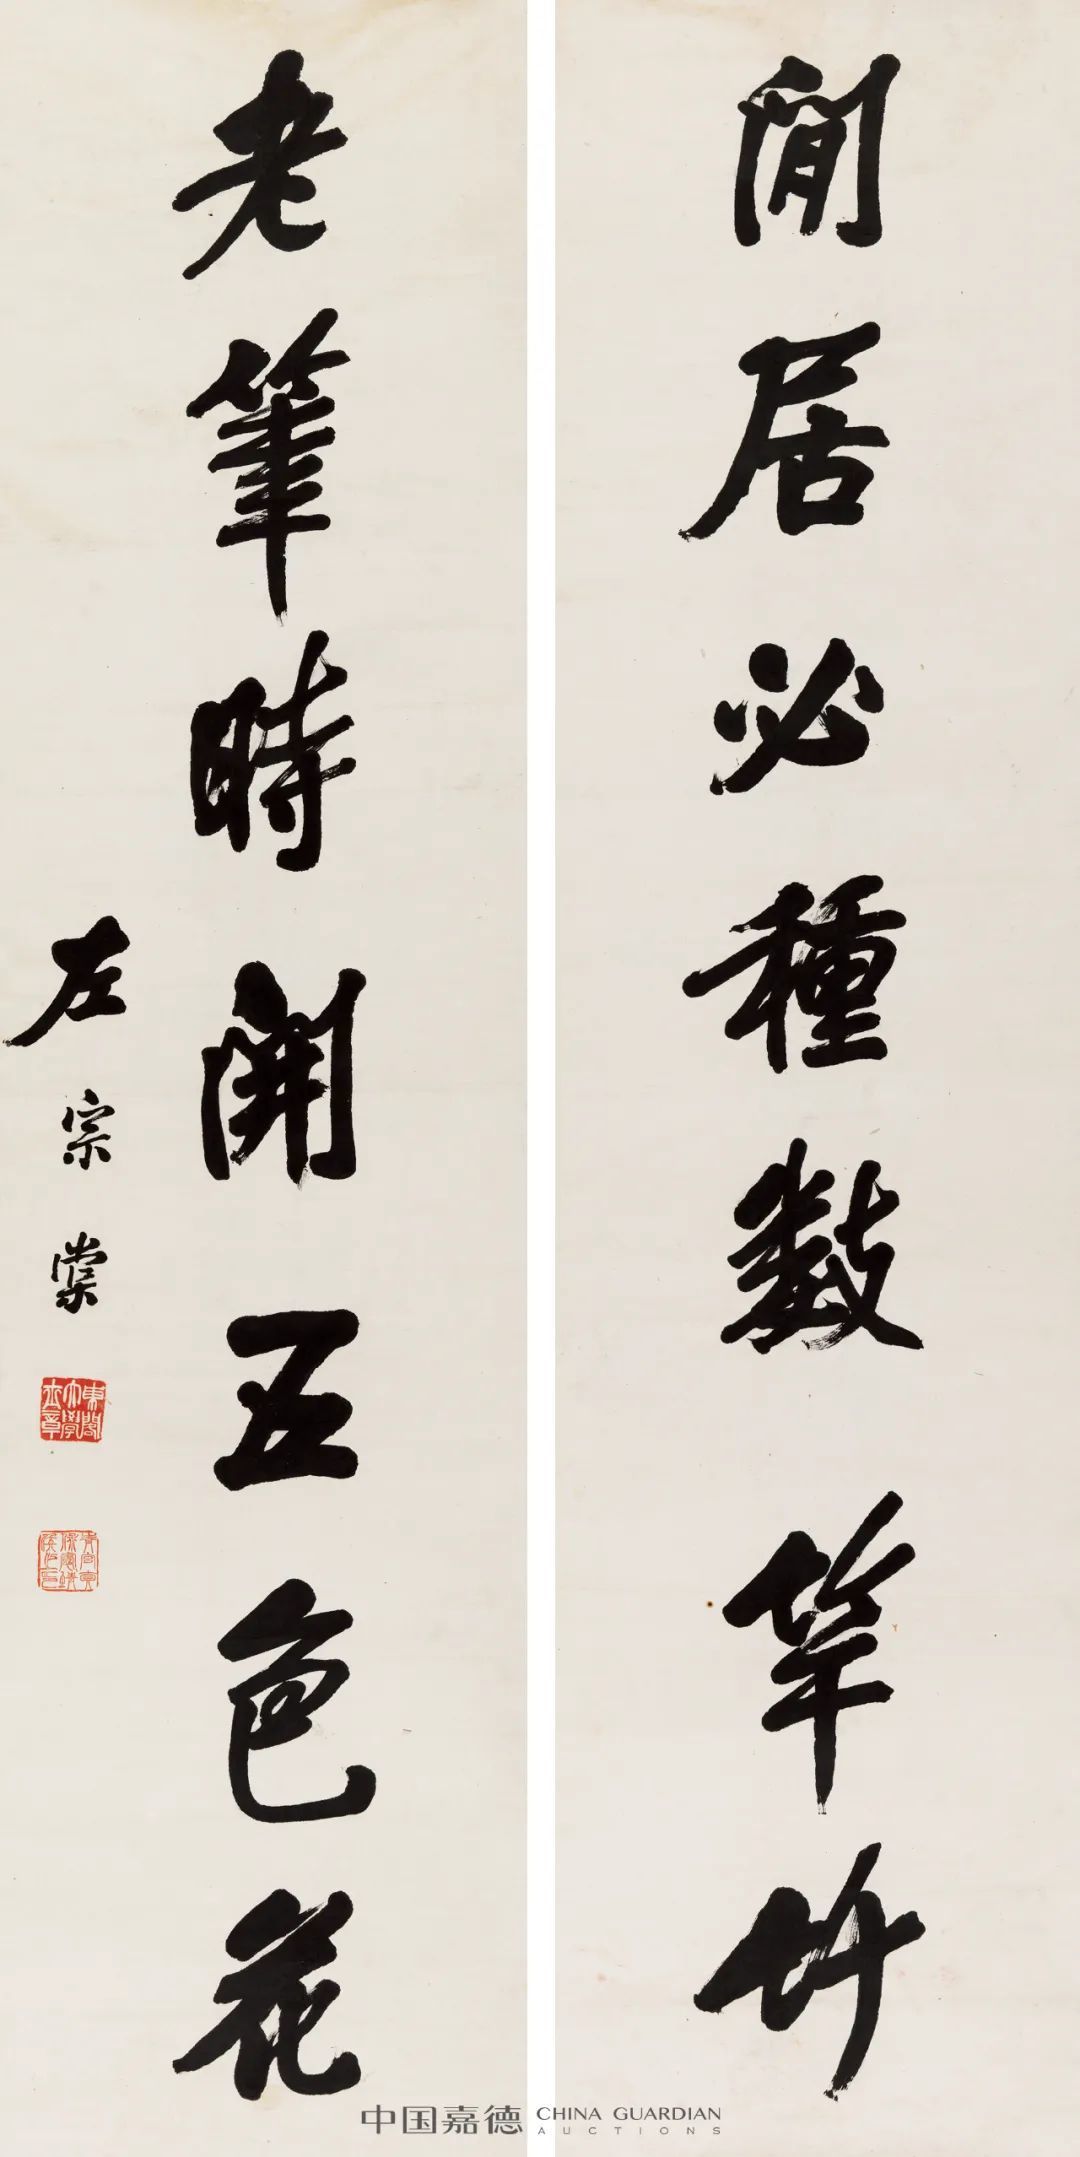 閒居必種數竿竹
老筆時開五色花
左宗棠
東閣大學士章
中国嘉德 CHINA GUARDIAN
AUCTIONS